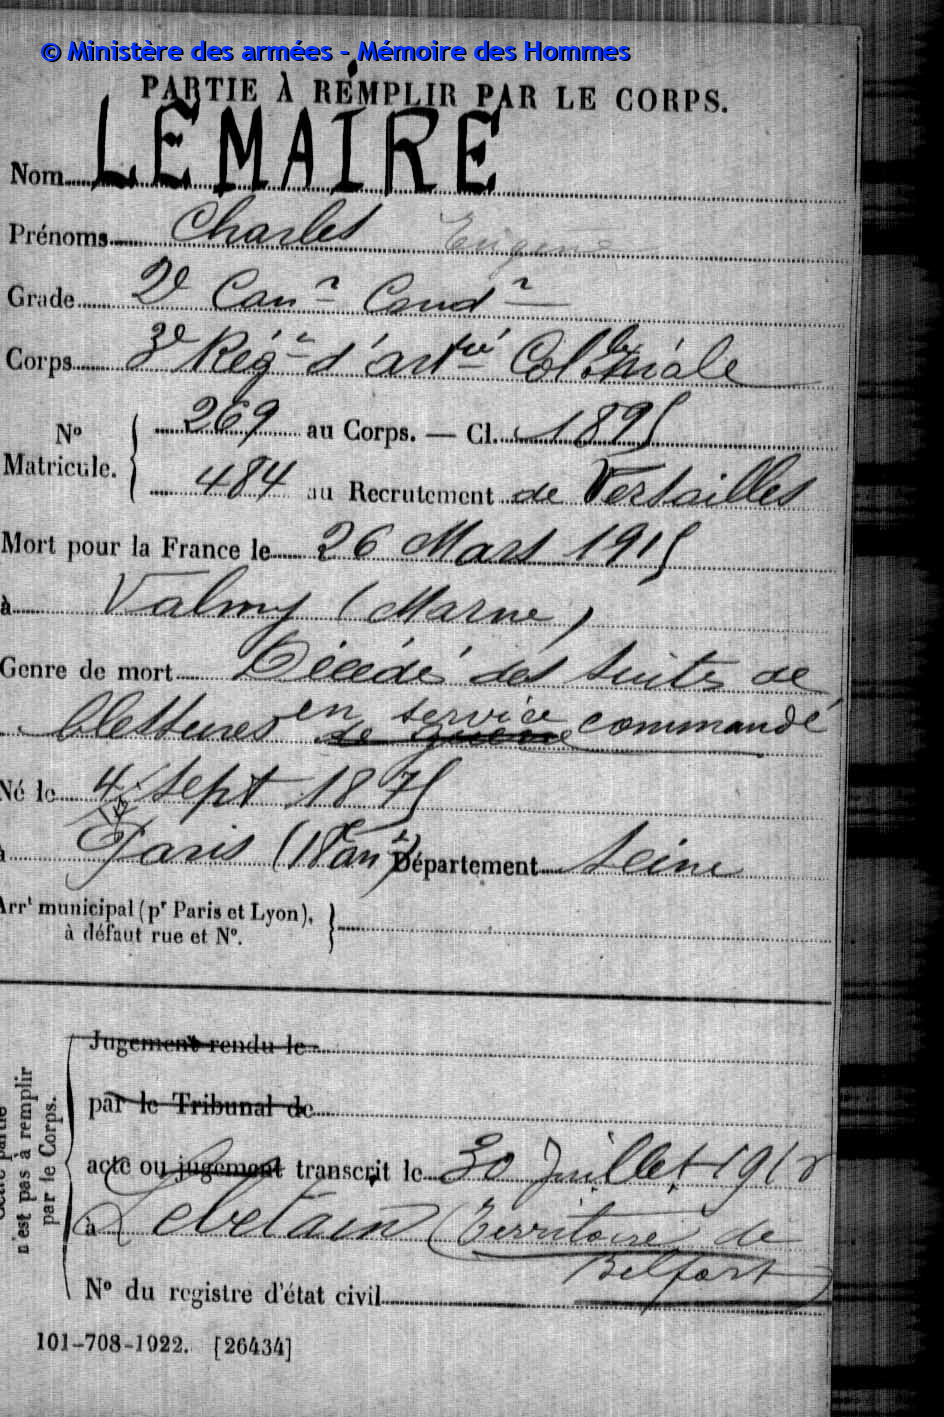 © Ministère des armées - Mémoire des Hommes
PARTIE À REMPLIR PAR LE CORPS.
Nom LEMAIRE
Prénoms Charles Eugène
Grade 2e Canr Condr
Corps 3e Régt d'artie Coloniale
No Matricule. 269 au Corps. — Cl. 1895
484 au Recrutement de Versailles
Mort pour la France le 26 Mars 1915
à Valmy (Marne)
Genre de mort Décédé des suites de
blessures de guerre en service commandé
Né le 4 Sept 1875
à Paris (18e arrt) Département Seine
Arrt municipal (pr Paris et Lyon),
à défaut rue et No.
Cette partie
n'est pas à remplir
par le Corps.
Jugement rendu le
par le Tribunal de
acte ou jugement transcrit le 30 Juillet 191
à Lebetain (Territoire de
Belfort)
No du registre d'état civil
101-708-1922. [26434]